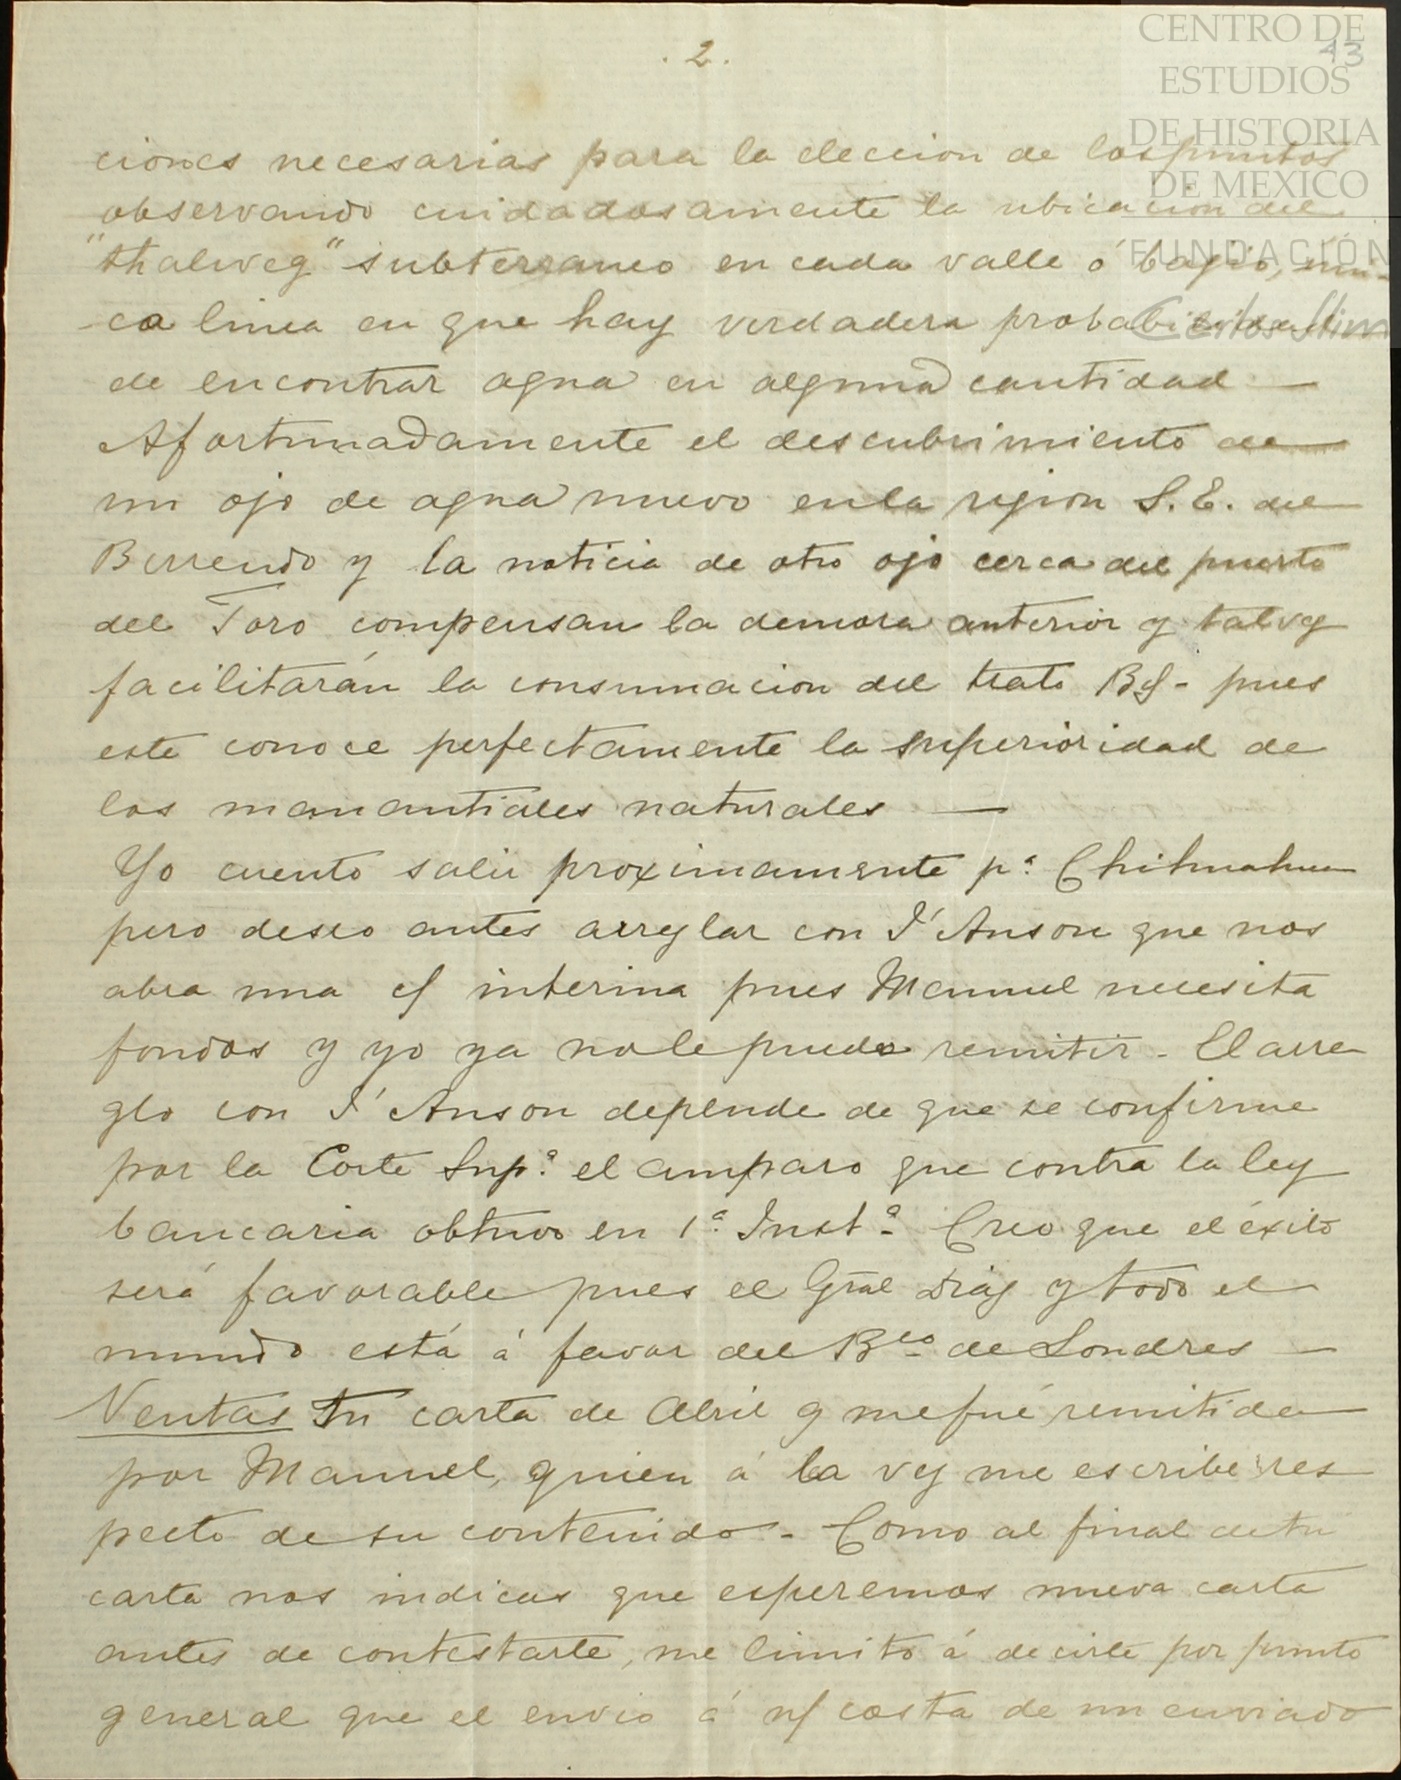 . 2 .
43
CENTRO DE
ESTUDIOS
DE HISTORIA
DE MEXICO
FUNDACIÓN
Carlos Slim
ciones necesarias para la eleccion de los puntos
observando cuidadosamente la ubicacion del
"thalweg" subterraneo en cada valle ó bajio, úni-
ca linea en que hay verdadera probabilidad
de encontrar agua en alguna cantidad —
Afortunadamente el descubrimiento de
un ojo de agua nuevo en la region S. E. del
Berrendo y la noticia de otro ojo cerca del puerto
del Toro compensan la demora anterior y talvez
facilitarán la consumacion del trato - pues
este conoce perfectamente la superioridad de
los manantiales naturales —
Yo cuento salir proximamente pª Chihuahua
pero deseo antes arreglar con I'Anson que nos
abra una c/ interina pues Manuel necesita
fondos y yo ya no le puedo remitir - El arre
glo con I'Anson depende de que se confirme
por la Corte Supª el amparo que contra la ley
bancaria obtuvo en 1ª Instª Creo que el éxito
será favorable pues el Gral Diaz y todo el
mundo está á favor del Bco de Londres —
Ventas Tu carta de Abril 9 me fué remitida
por Manuel, quien á la vez me escribe res
pecto de su contenido - Como al final de tu
carta nos indicas que esperemos nueva carta
antes de contestarte, me limito á decirte por punto
general que el envio á n/ costa de un enviado